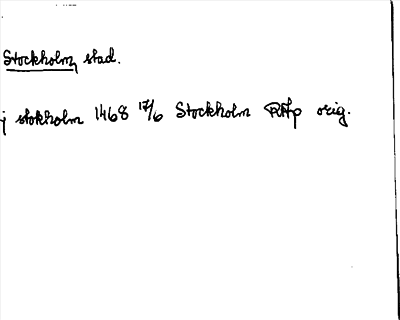 Stockholm, stad.
j stokholm 1468 17/6 Stockholm RAp orig.